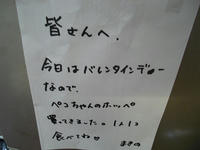 皆さんへ、
今日はバレンタインデー
なので、
ペコちゃんのホッペ
買ってきました。1人1コ
食べてね♡
まきの